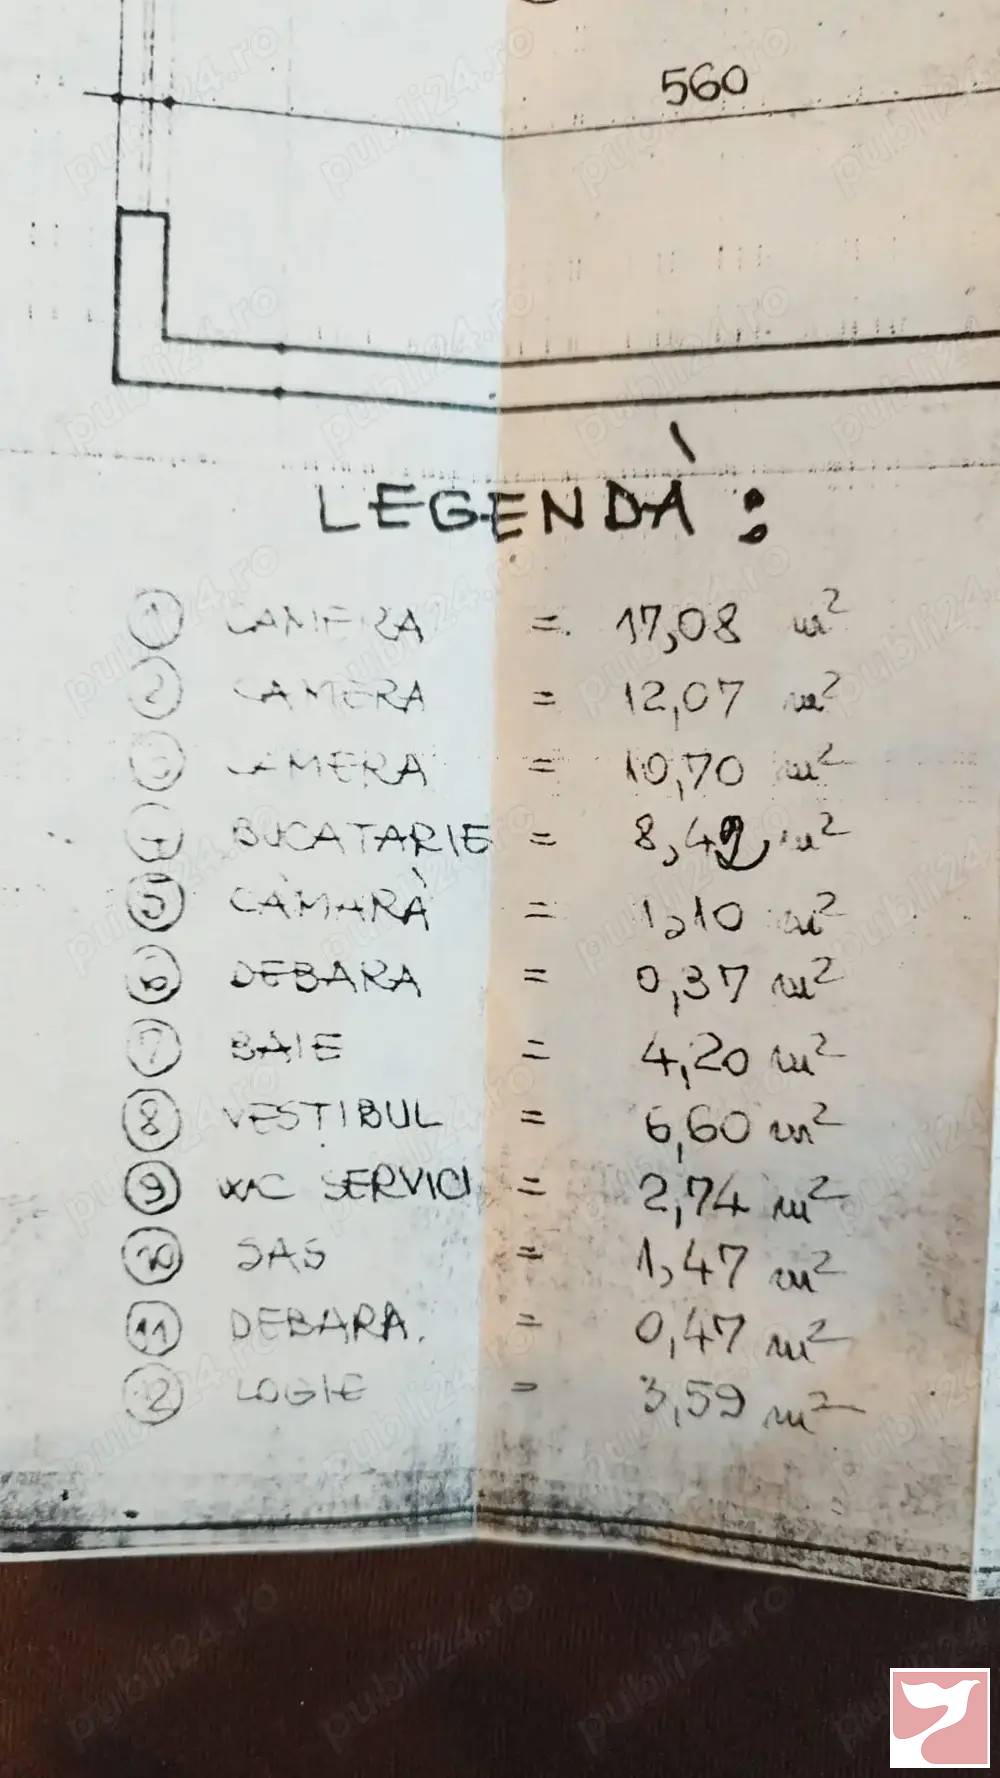 560
LEGENDĂ :
1 CAMERA = 17,08 m²
2 CAMERA = 12,07 m²
3 CAMERA = 10,70 m²
4 BUCATARIE = 8,42 m²
5 CĂMARĂ = 1,10 m²
6 DEBARA = 0,37 m²
7 BAIE = 4,20 m²
8 VESTIBUL = 6,60 m²
9 WC SERVICI = 2,74 m²
10 SAS = 1,47 m²
11 DEBARA. = 0,47 m²
12 LOGIE = 3,59 m²
publi24.ro